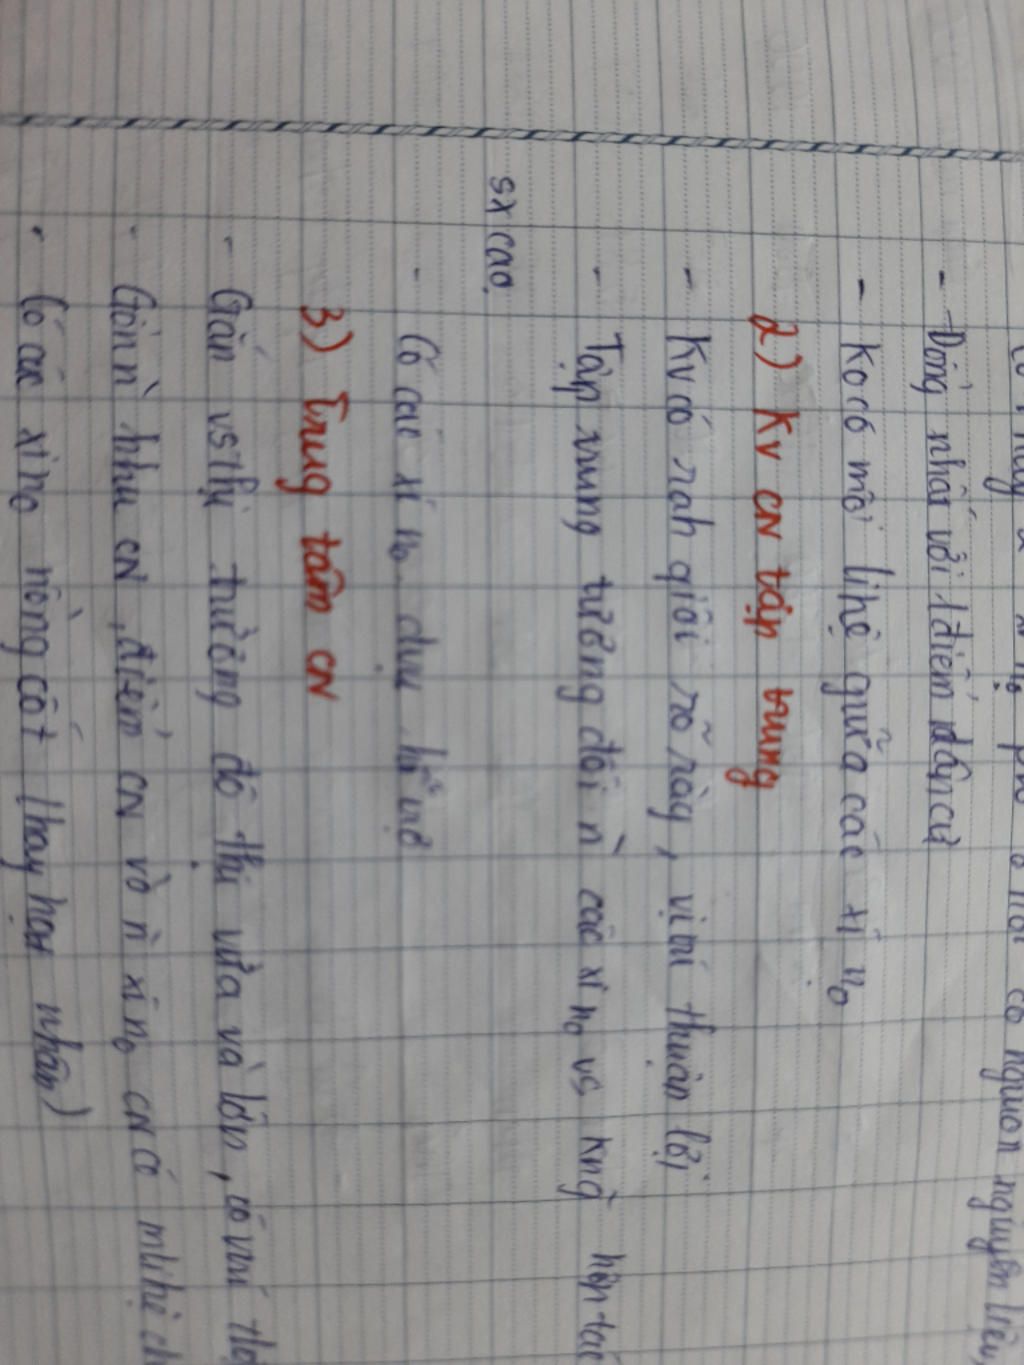 có nguồn nguyên liệu,
- Đồng nhất với 1 điểm dân cư
- Ko có mối lihệ giữa các xí no
2) KV CN tập trung
- KV có ranh giới rõ ràng, vị trí thuận lợi
- Tập trung tương đối ǹ các xí no vs knă hợp tác
sx cao
- Có các xí no dvụ hỗ trợ
3) Trung tâm CN
- Gắn vs thị trường đô thị vừa và lớn, có vtrí
- Gồm ǹ khu CN, điểm CN và ǹ xí no CN có mlihệ
- Có các xí no nòng cốt (hay hạt nhân)